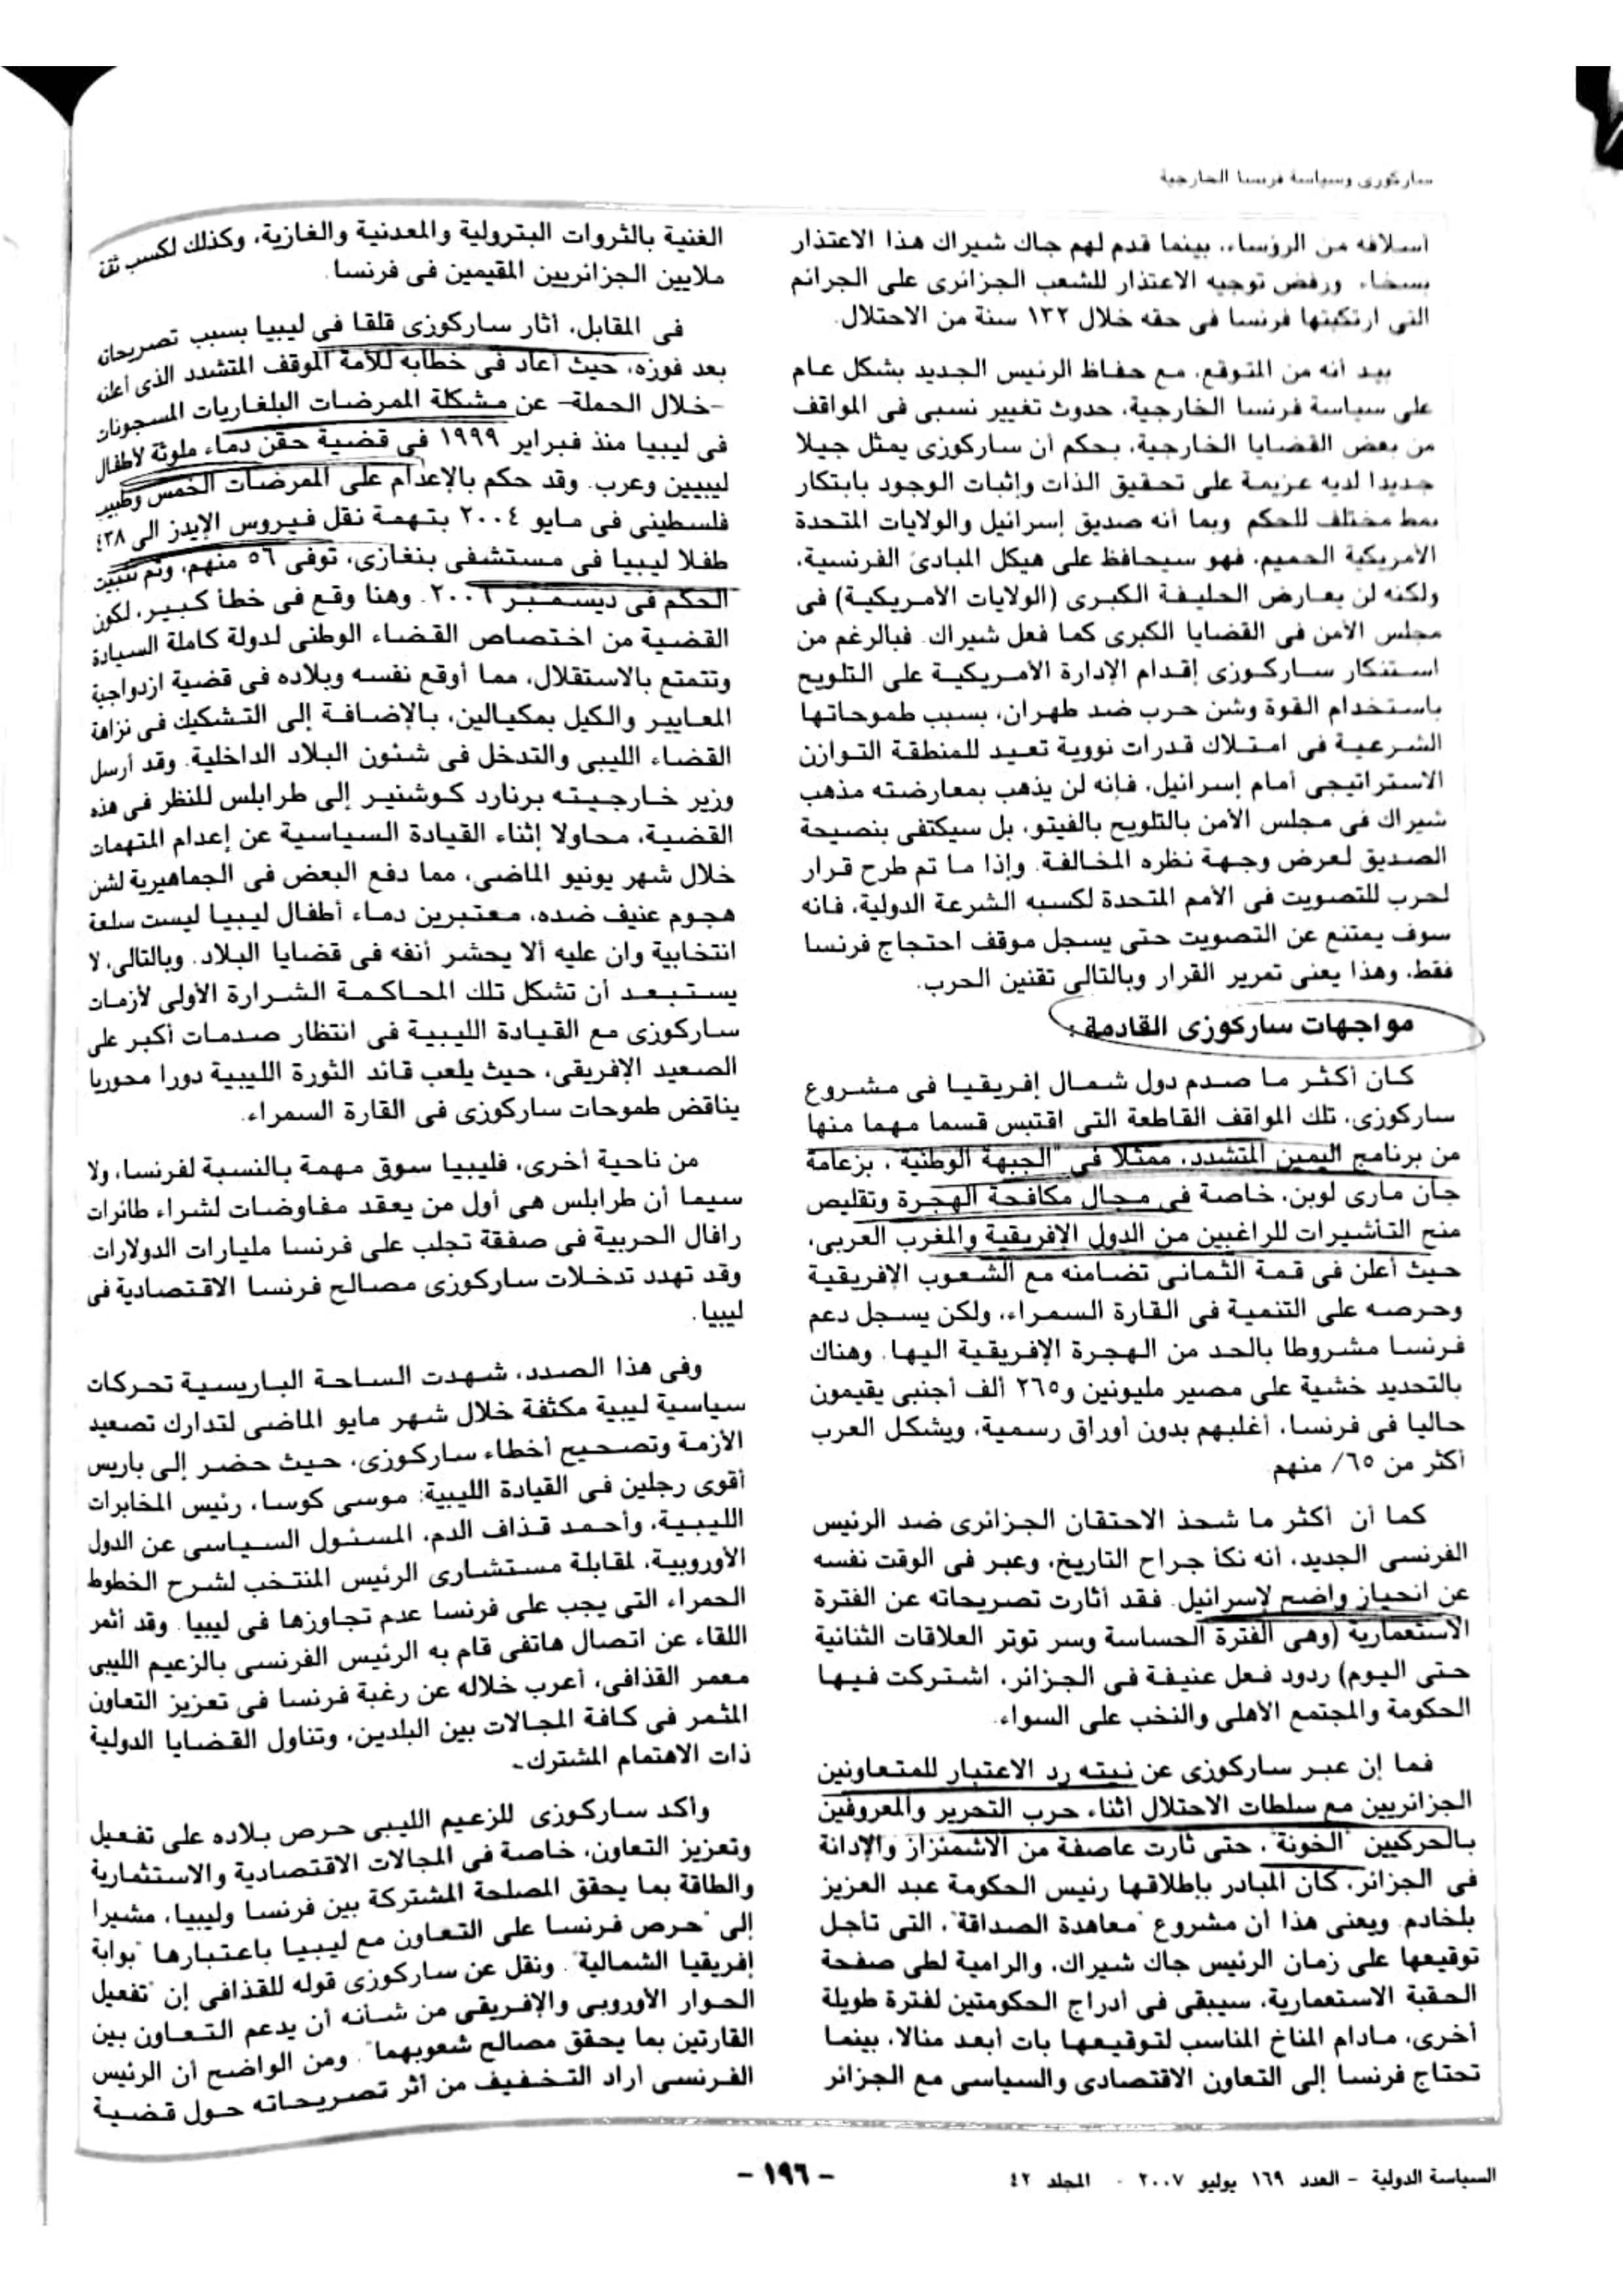 ساركوزى وسياسة فرنسا الخارجية
أسلافه من الرؤساء، بينما قدم لهم جاك شيراك هذا الاعتذار
بسخاء ورفض توجيه الاعتذار للشعب الجزائرى على الجرائم
التى ارتكبتها فرنسا فى حقه خلال ١٣٢ سنة من الاحتلال.
بيد أنه من المتوقع، مع حفاظ الرئيس الجديد بشكل عام
على سياسة فرنسا الخارجية، حدوث تغيير نسبى فى المواقف
من بعض القضايا الخارجية، بحكم أن ساركوزى يمثل جيلا
جديدا لديه عزيمة على تحقيق الذات وإثبات الوجود بابتكار
نمط مختلف للحكم وبما أنه صديق إسرائيل والولايات المتحدة
الأمريكية الحميم، فهو سيحافظ على هيكل المبادئ الفرنسية،
ولكنه لن يعارض الحليفة الكبرى (الولايات الأمريكية) فى
مجلس الأمن فى القضايا الكبرى كما فعل شيراك. فبالرغم من
استنكار ساركوزى إقدام الإدارة الأمريكية على التلويح
باستخدام القوة وشن حرب ضد طهران، بسبب طموحاتها
الشرعية فى امتلاك قدرات نووية تعيد للمنطقة التوازن
الاستراتيجى أمام إسرائيل، فإنه لن يذهب بمعارضته مذهب
شيراك فى مجلس الأمن بالتلويح بالفيتو، بل سيكتفى بنصيحة
الصديق لعرض وجهة نظره المخالفة. وإذا ما تم طرح قرار
لحرب للتصويت فى الأمم المتحدة لكسبه الشرعة الدولية، فانه
سوف يمتنع عن التصويت حتى يسجل موقف احتجاج فرنسا
فقط، وهذا يعنى تمرير القرار وبالتالى تقنين الحرب.
مواجهات ساركوزى القادمة :
كان أكثر ما صدم دول شمال إفريقيا فى مشروع
ساركوزى، تلك المواقف القاطعة التى اقتبس قسما مهما منها
من برنامج اليمين المتشدد، ممثلا فى "الجبهة الوطنية"، بزعامة
جان مارى لوبن، خاصة فى مجال مكافحة الهجرة وتقليص
منح التأشيرات للراغبين من الدول الإفريقية والمغرب العربى،
حيث أعلن فى قمة الثمانى تضامنه مع الشعوب الإفريقية
وحرصه على التنمية فى القارة السمراء، ولكن يسجل دعم
فرنسا مشروطا بالحد من الهجرة الإفريقية اليها. وهناك
بالتحديد خشية على مصير مليونين و٢٦٥ ألف أجنبى يقيمون
حاليا فى فرنسا، أغلبهم بدون أوراق رسمية، ويشكل العرب
أكثر من ٦٥٪ منهم
كما أن أكثر ما شحذ الاحتقان الجزائرى ضد الرئيس
الفرنسى الجديد، أنه نكأ جراح التاريخ، وعبر فى الوقت نفسه
عن انحياز واضح لإسرائيل. فقد أثارت تصريحاته عن الفترة
الاستعمارية (وهى الفترة الحساسة وسر توتر العلاقات الثنائية
حتى اليوم) ردود فعل عنيفة فى الجزائر، اشتركت فيها
الحكومة والمجتمع الأهلى والنخب على السواء.
فما إن عبر ساركوزى عن نيته رد الاعتبار للمتعاونين
الجزائريين مع سلطات الاحتلال أثناء حرب التحرير والمعروفين
بالحركيين "الخونة"، حتى ثارت عاصفة من الاشمئزاز والإدانة
فى الجزائر، كان المبادر بإطلاقها رئيس الحكومة عبد العزيز
بلخادم. ويعنى هذا أن مشروع "معاهدة الصداقة"، التى تأجل
توقيعها على زمان الرئيس جاك شيراك، والرامية لطى صفحة
الحقبة الاستعمارية، سيبقى فى أدراج الحكومتين لفترة طويلة
أخرى، مادام المناخ المناسب لتوقيعها بات أبعد منالا، بينما
تحتاج فرنسا إلى التعاون الاقتصادى والسياسى مع الجزائر
الغنية بالثروات البترولية والمعدنية والغازية، وكذلك لكسب ثقة
ملايين الجزائريين المقيمين فى فرنسا.
فى المقابل، أثار ساركوزى قلقا فى ليبيا بسبب تصريحاته
بعد فوزه، حيث أعاد فى خطابه للأمة الموقف المتشدد الذى أعلنه
-خلال الحملة- عن مشكلة الممرضات البلغاريات المسجونات
فى ليبيا منذ فبراير ١٩٩٩ فى قضية حقن دماء ملوثة لأطفال
ليبيين وعرب. وقد حكم بالإعدام على الممرضات الخمس وطبيب
فلسطينى فى مايو ٢٠٠٤ بتهمة نقل فيروس الإيدز الى ٤٣٨
طفلا ليبيا فى مستشفى بنغازى، توفى ٥٦ منهم، وتم تثبيت
الحكم فى ديسمبر ٢٠٠٦. وهنا وقع فى خطأ كبير، لكون
القضية من اختصاص القضاء الوطنى لدولة كاملة السيادة
وتتمتع بالاستقلال، مما أوقع نفسه وبلاده فى قضية ازدواجية
المعايير والكيل بمكيالين، بالإضافة إلى التشكيك فى نزاهة
القضاء الليبى والتدخل فى شئون البلاد الداخلية. وقد أرسل
وزير خارجيته برنارد كوشنير إلى طرابلس للنظر فى هذه
القضية، محاولا إثناء القيادة السياسية عن إعدام المتهمات
خلال شهر يونيو الماضى، مما دفع البعض فى الجماهيرية لشن
هجوم عنيف ضده، معتبرين دماء أطفال ليبيا ليست سلعة
انتخابية وان عليه ألا يحشر أنفه فى قضايا البلاد. وبالتالى، لا
يستبعد أن تشكل تلك المحاكمة الشرارة الأولى لأزمات
ساركوزى مع القيادة الليبية فى انتظار صدمات أكبر على
الصعيد الإفريقى، حيث يلعب قائد الثورة الليبية دورا محوريا
يناقض طموحات ساركوزى فى القارة السمراء.
من ناحية أخرى، فليبيا سوق مهمة بالنسبة لفرنسا، ولا
سيما أن طرابلس هى أول من يعقد مفاوضات لشراء طائرات
رافال الحربية فى صفقة تجلب على فرنسا مليارات الدولارات.
وقد تهدد تدخلات ساركوزى مصالح فرنسا الاقتصادية فى
ليبيا.
وفى هذا الصدد، شهدت الساحة الباريسية تحركات
سياسية ليبية مكثفة خلال شهر مايو الماضى لتدارك تصعيد
الأزمة وتصحيح أخطاء ساركوزى، حيث حضر إلى باريس
أقوى رجلين فى القيادة الليبية: موسى كوسا، رئيس المخابرات
الليبية، وأحمد قذاف الدم، المسئول السياسى عن الدول
الأوروبية، لمقابلة مستشارى الرئيس المنتخب لشرح الخطوط
الحمراء التى يجب على فرنسا عدم تجاوزها فى ليبيا. وقد أثمر
اللقاء عن اتصال هاتفى قام به الرئيس الفرنسى بالزعيم الليبى
معمر القذافى، أعرب خلاله عن رغبة فرنسا فى تعزيز التعاون
المثمر فى كافة المجالات بين البلدين، وتناول القضايا الدولية
ذات الاهتمام المشترك.
وأكد ساركوزى للزعيم الليبى حرص بلاده على تفعيل
وتعزيز التعاون، خاصة فى المجالات الاقتصادية والاستثمارية
والطاقة بما يحقق المصلحة المشتركة بين فرنسا وليبيا، مشيرا
إلى "حرص فرنسا على التعاون مع ليبيا باعتبارها "بوابة
إفريقيا الشمالية". ونقل عن ساركوزى قوله للقذافى إن "تفعيل
الحوار الأوروبى والإفريقى من شأنه أن يدعم التعاون بين
القارتين بما يحقق مصالح شعوبهما". ومن الواضح أن الرئيس
الفرنسى أراد التخفيف من أثر تصريحاته حول قضية
السياسة الدولية - العدد ١٦٩ يوليو ٢٠٠٧ - المجلد ٤٢
- ١٩٦ -